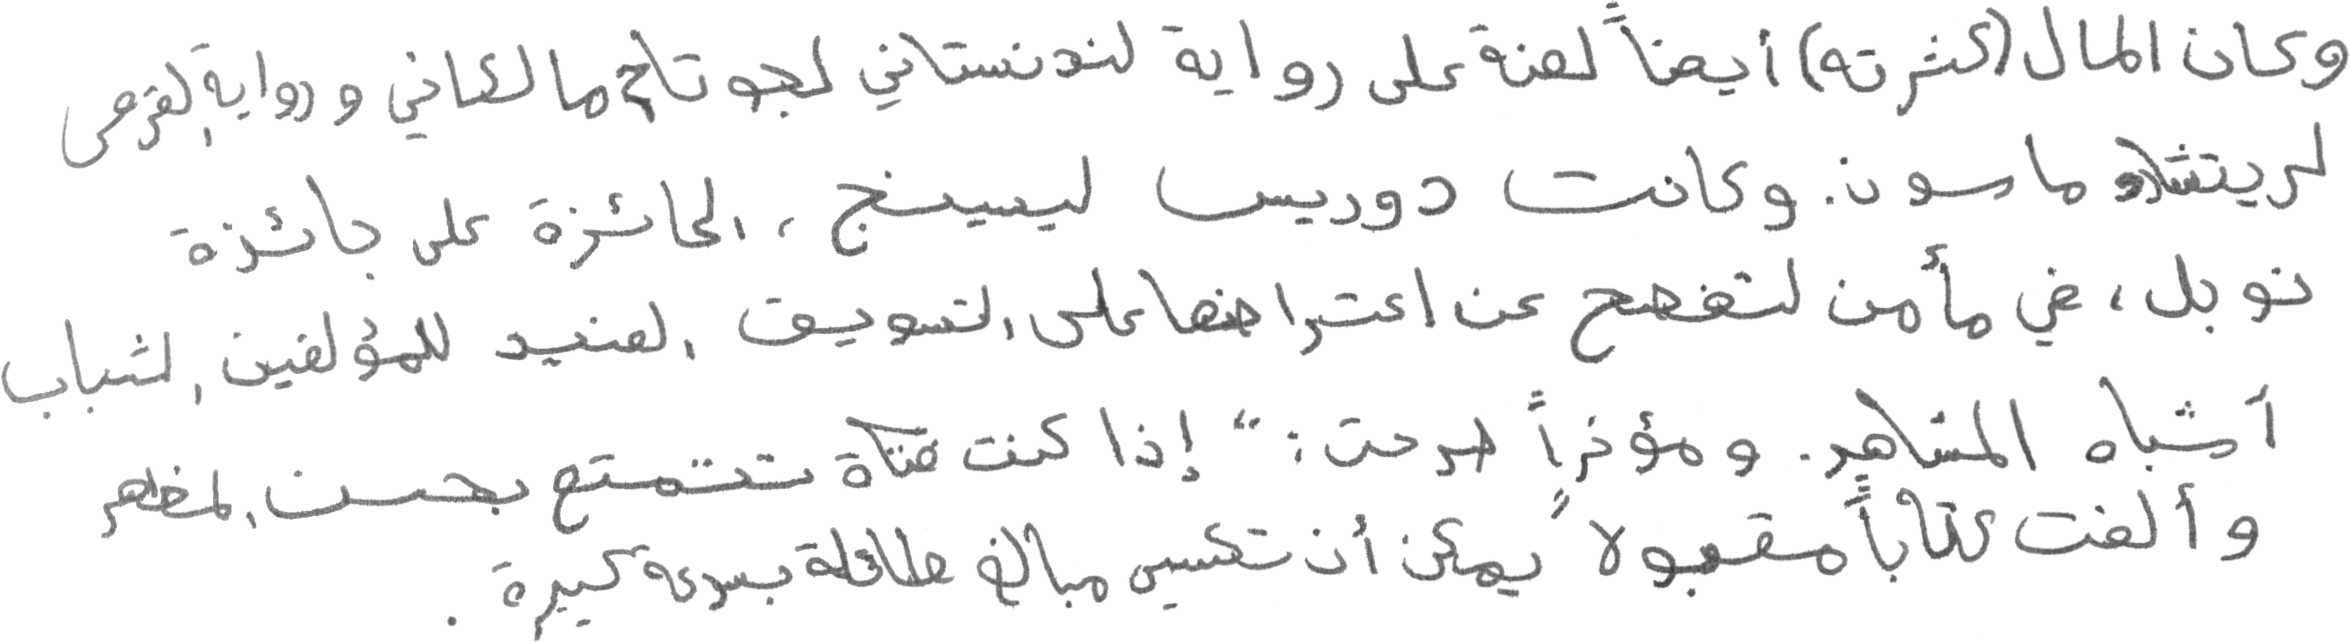 وكان المال (كثرته) أيضاً لعنة على رواية لندنستاني لجوتاج مالكاني ورواية القرص
لريتشارد ماسون. وكانت دوريس ليسينج، الحائزة على جائزة
نوبل، في مأمن لتفصح عن اعتراضها على التسويق العنيد للمؤلفين الشباب
أشباه المشاهير. ومؤخراً صرحت: "إذا كنت فتاة تتمتع بحسن المظهر
وألفت كتاباً مقبولاً يمكن أن تكسبي مبالغ طائلة بسرعة كبيرة.